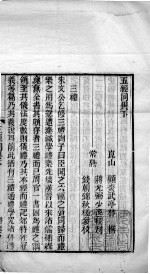 五經同異下
崑山 顧炎武亭林 輯
蔣光弼少逸
常熟
三禮
朱文公乞修三禮劄子曰臣聞之六經之道同歸而禮
樂之用為急遭秦滅學禮樂先壞漢晉以來諸儒補緝
竟無全書其頗存者三禮而已周官一書固為禮之綱
領至其儀法度數則儀禮乃其本經而禮記郊特牲冠
義等篇乃其義說耳前此猶有三禮通禮學究諸科禮